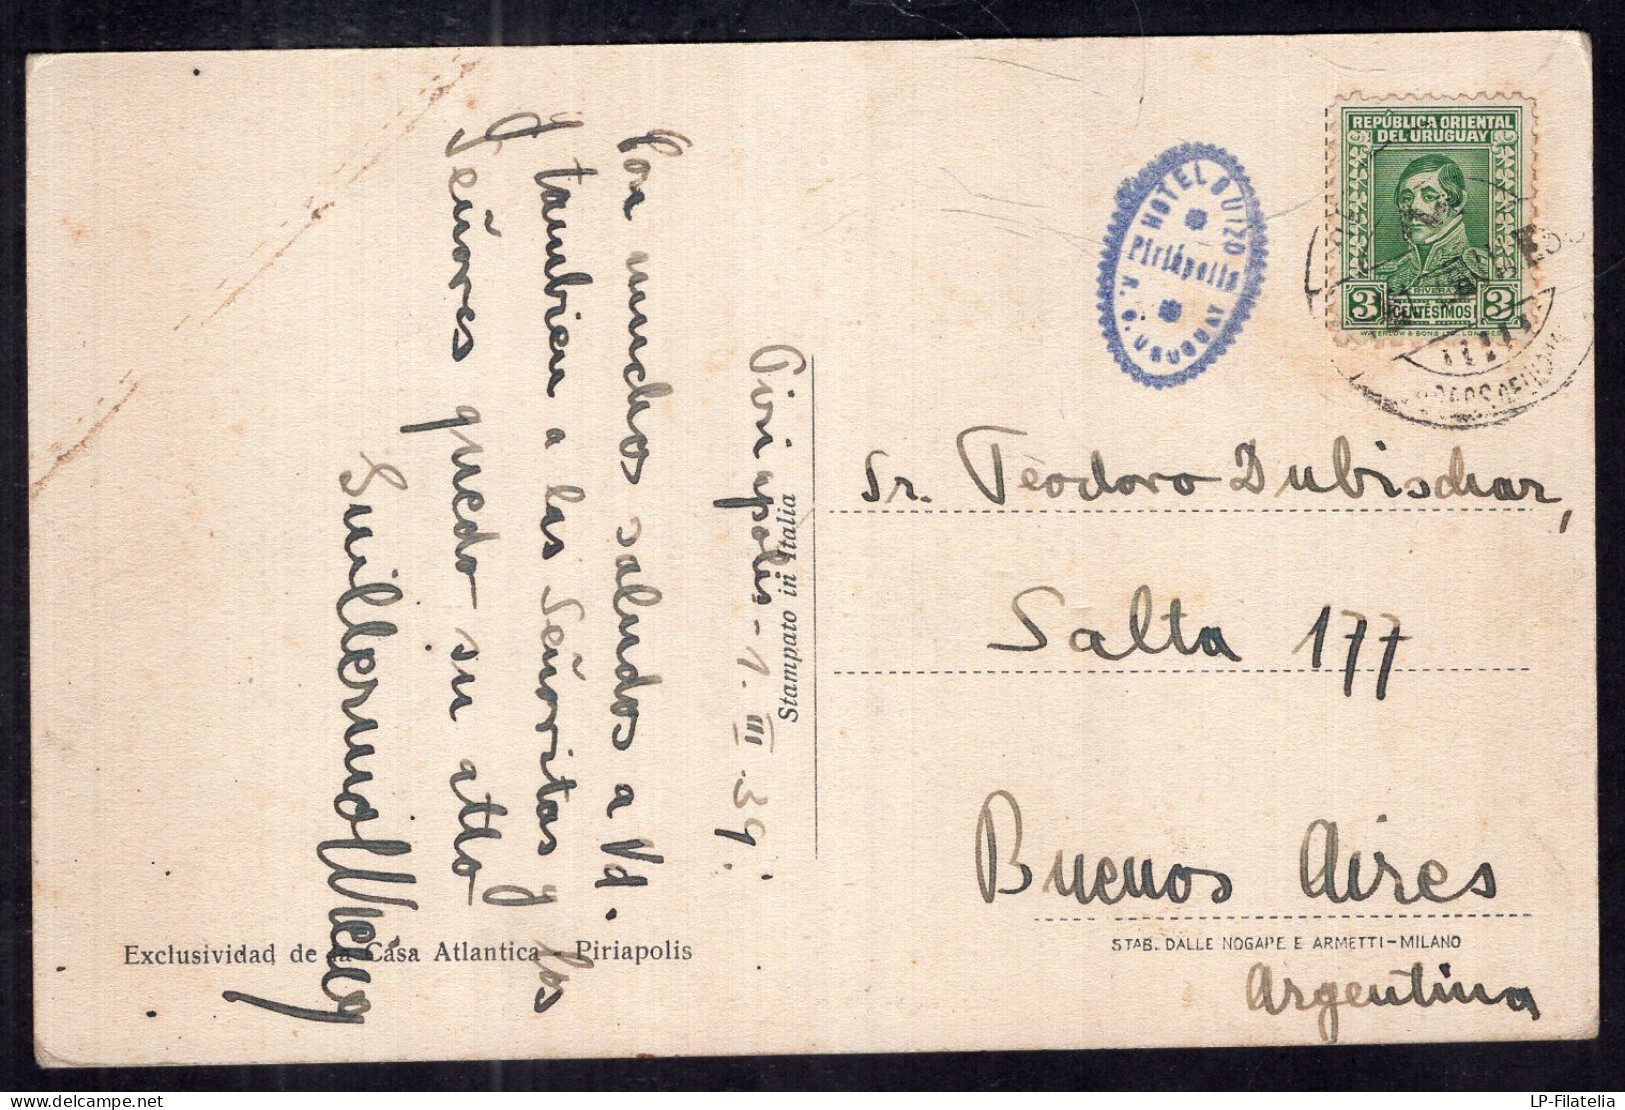 Con muchos saludos a Vd.
y tambien a las Señoritas y los
Señores quedo su atto
Guillermo
Piriapolis - 1. III. 39.
Stampato in Italia
Exclusividad de la Casa Atlantica - Piriapolis
HOTEL SUIZO
Piriápolis
R. O. URUGUAY
REPÚBLICA ORIENTAL
DEL URUGUAY
RIVERA
3 CENTÉSIMOS 3
WATERLOW & SONS LTD. LONDRES
Sr. Teodoro Dubischar,
Salta 177
Buenos Aires
STAB. DALLE NOGARE E ARMETTI-MILANO
Argentina
LP-Filatelia